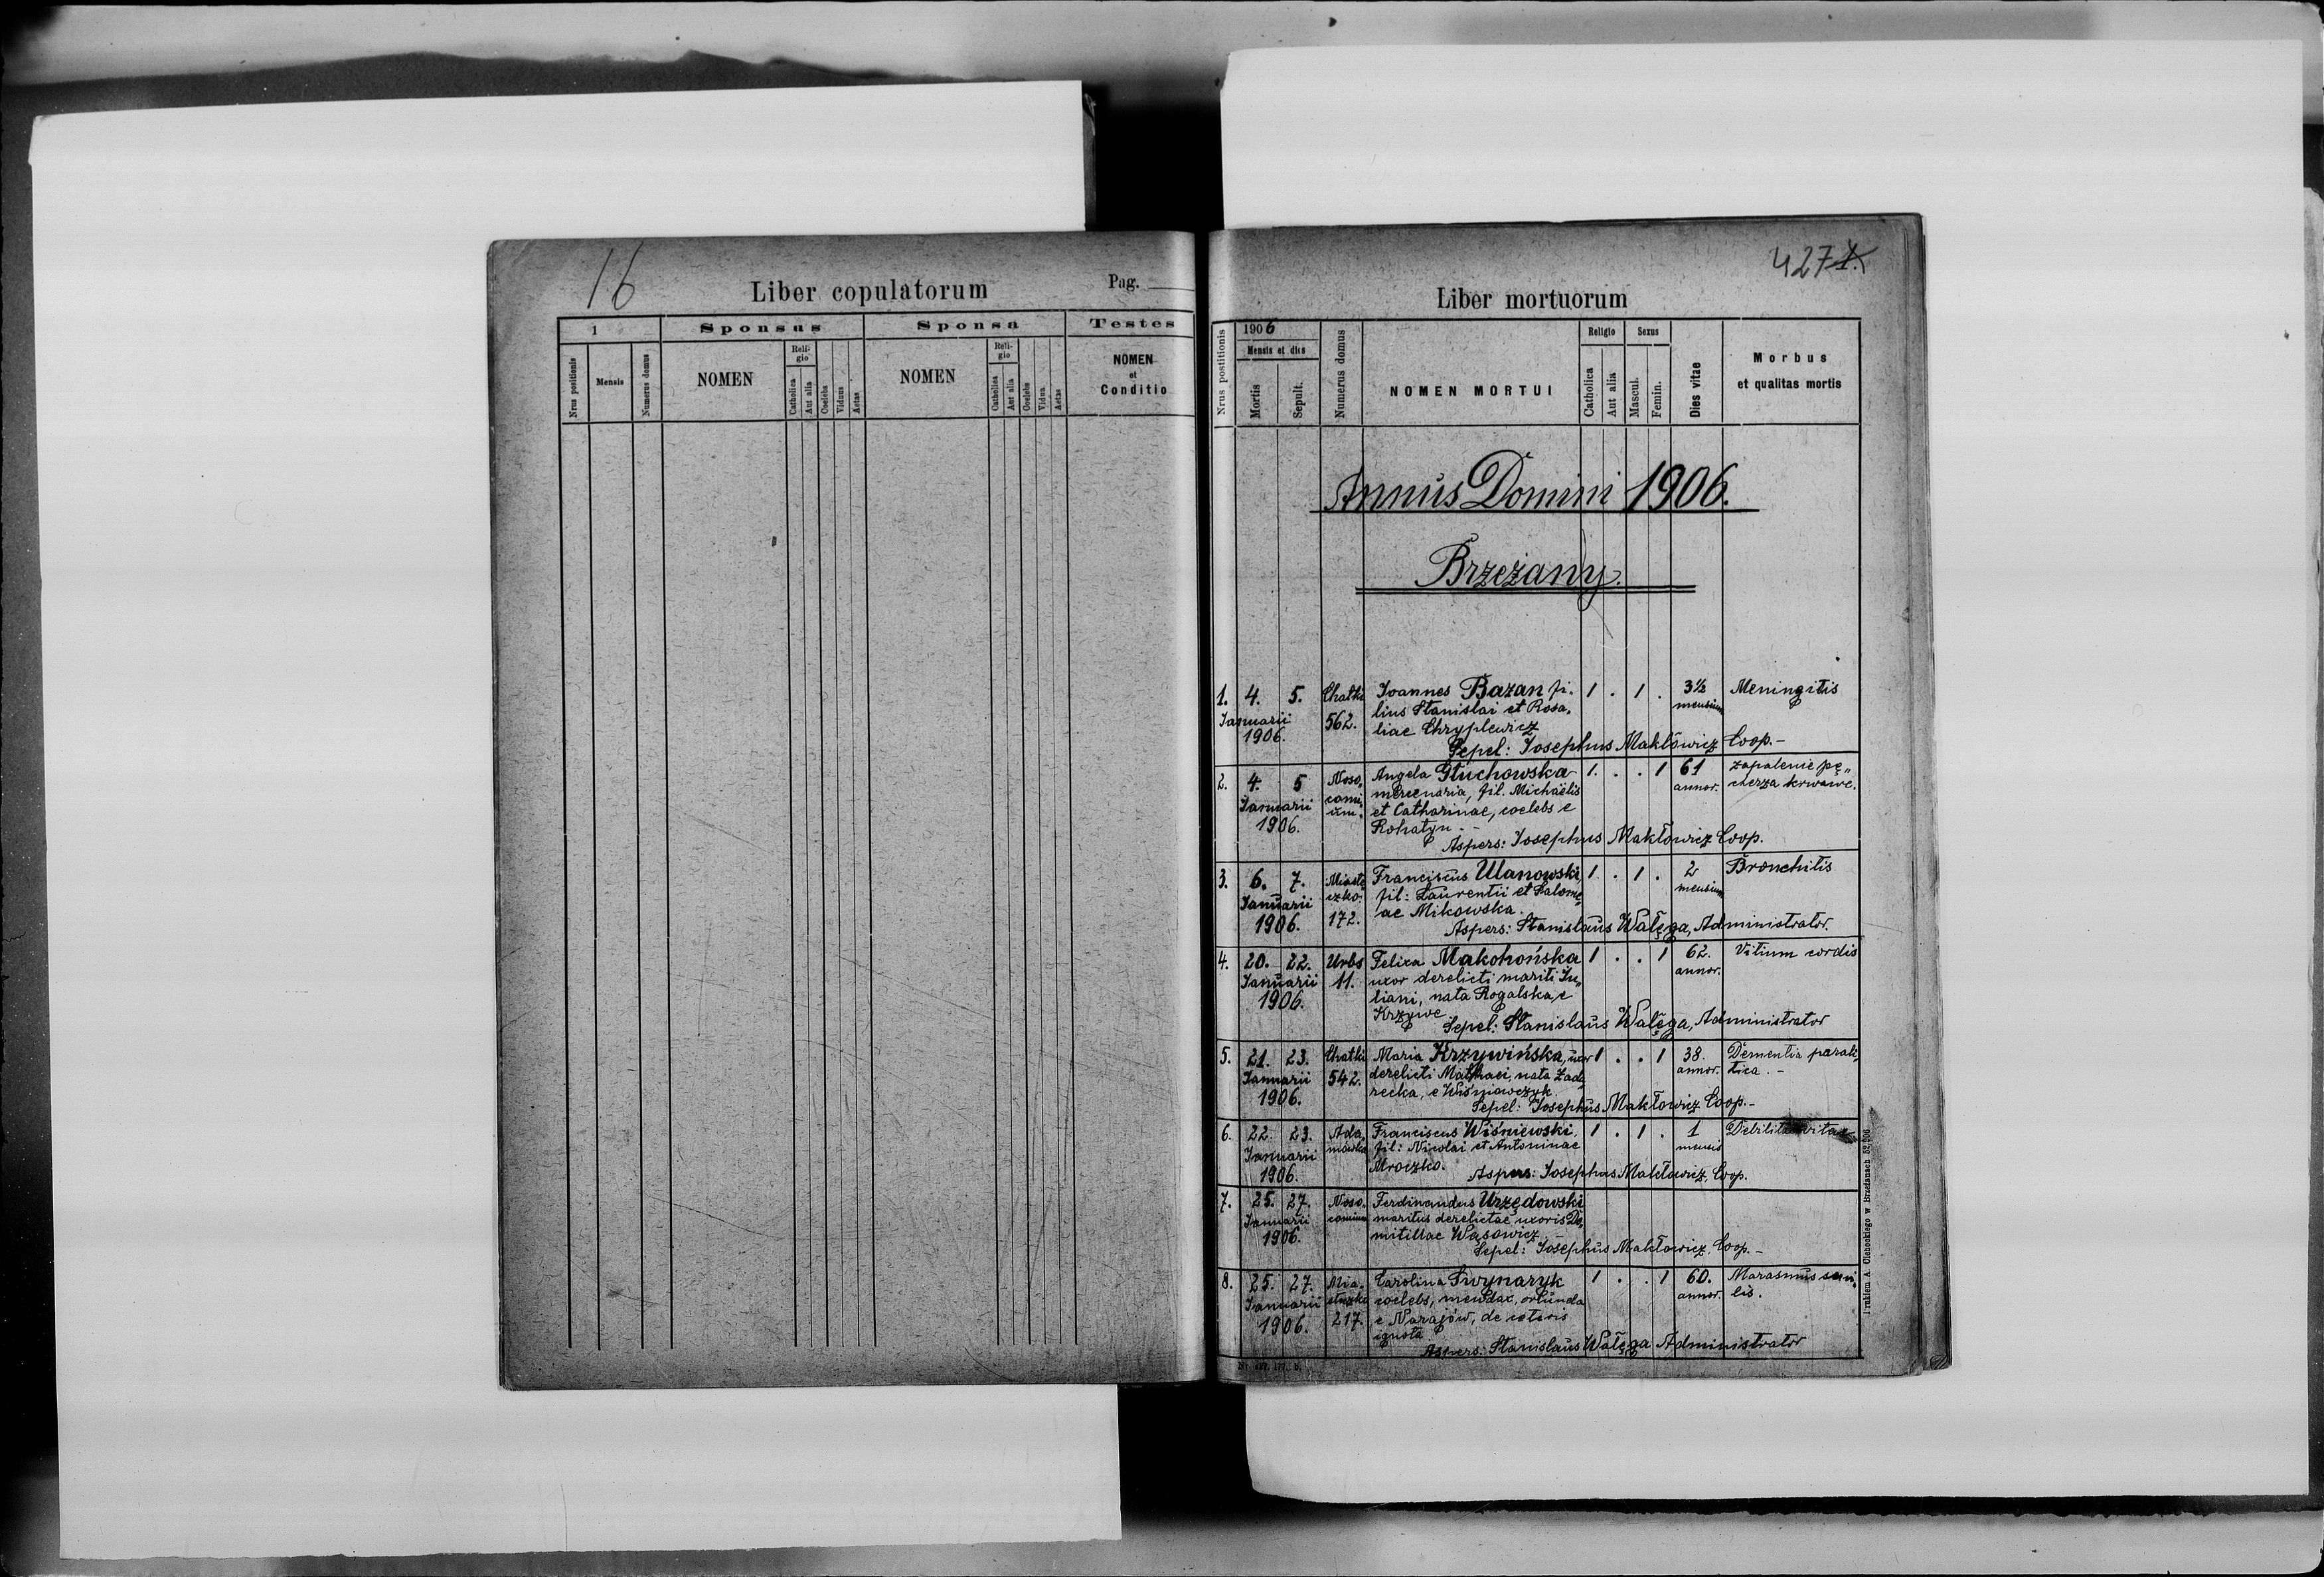 16
Liber copulatorum
Pag.
1
Sponsus
Sponsa
Testes
Nrus positionis
Mensis
Numerus domus
NOMEN
Reli-
gio
Catholica
Aut alia
Coelebs
Viduus
Aetas
NOMEN
Reli-
gio
Catholica
Aut alia
Coelebs
Vidua
Aetas
NOMEN
et
Conditio
427 1.
Liber mortuorum
Nrus postitionis
1906
Mensis et dies
Mortis
Sepult.
Numerus domus
NOMEN MORTUI
Religio
Catholica
Aut alia
Sexus
Mascul.
Femin.
Dies vitae
Morbus
et qualitas mortis
Annus Domini 1906.
Brzeżany.
1. 4. 5. Chatki Joannes Bazan fi- 1 . 1 . 3½ Meningitis
Januarii 562. lius Stanislai et Rosa- mensium
1906. liae Chryplewicz
Sepel: Josephus Makłowicz Coop.-
2. 4. 5 Noso- Angela Głuchowska 1. . . 1 61 zapalenie pę-
Januarii comi- mercenaria, fil. Michaëlis annor. cherza krwawe.
1906. um. et Catharinae, coelebs e
Rohatyn.-
Aspers: Josephus Makłowicz Coop.
3. 6. 7. Miaste- Franciscus Ulanowski 1 . 1 . 2 Bronchitis
Januarii czko. fil: Laurentii et Salome- mensium
1906. 172. ae Mikowska.
Aspers: Stanislaus Wałęga, Administrator.
4. 20. 22. Urbs Felixa Makohońska 1 . . 1 62. Vitium cordis
Januarii 11. uxor derelicti mariti Ju- annor.
1906. liani, nata Rogalska, e
Krzywe
Sepel: Stanislaus Wałęga, Administrator
5. 21. 23. Chatki Maria Krzywińska, uxor 1 . . 1 38. Dementia parali-
Januarii 542. derelicti Mathaei, nata Zad- annor. tica.-
1906. recka, e Wiśniowczyk.
Sepel: Josephus Makłowicz Coop.-
6. 22. 23. Ada- Franciscus Wiśniewski, 1 . 1 . 1 Debilitas vitae
Januarii mówka fil: Nicolai et Antoninae mensis
1906. Mroczko.
Aspers: Josephus Makłowicz, Coop.
7. 25. 27. Noso- Ferdinandus Urzędowski
Januarii comium maritus derelictae uxoris Do-
1906. mitillae Wąsowicz.-
Sepel: Josephus Makłowicz, Coop.-
8. 25. 27. Mia- Carolina Swynaryk 1 . . 1 60. Marasmus seni-
Januarii steczko coelebs, mendax, oriunda annor. lis.
1906. 217. e Narajów, de ceteris
ignota.
Aspers: Stanislaus Wałęga Administrator